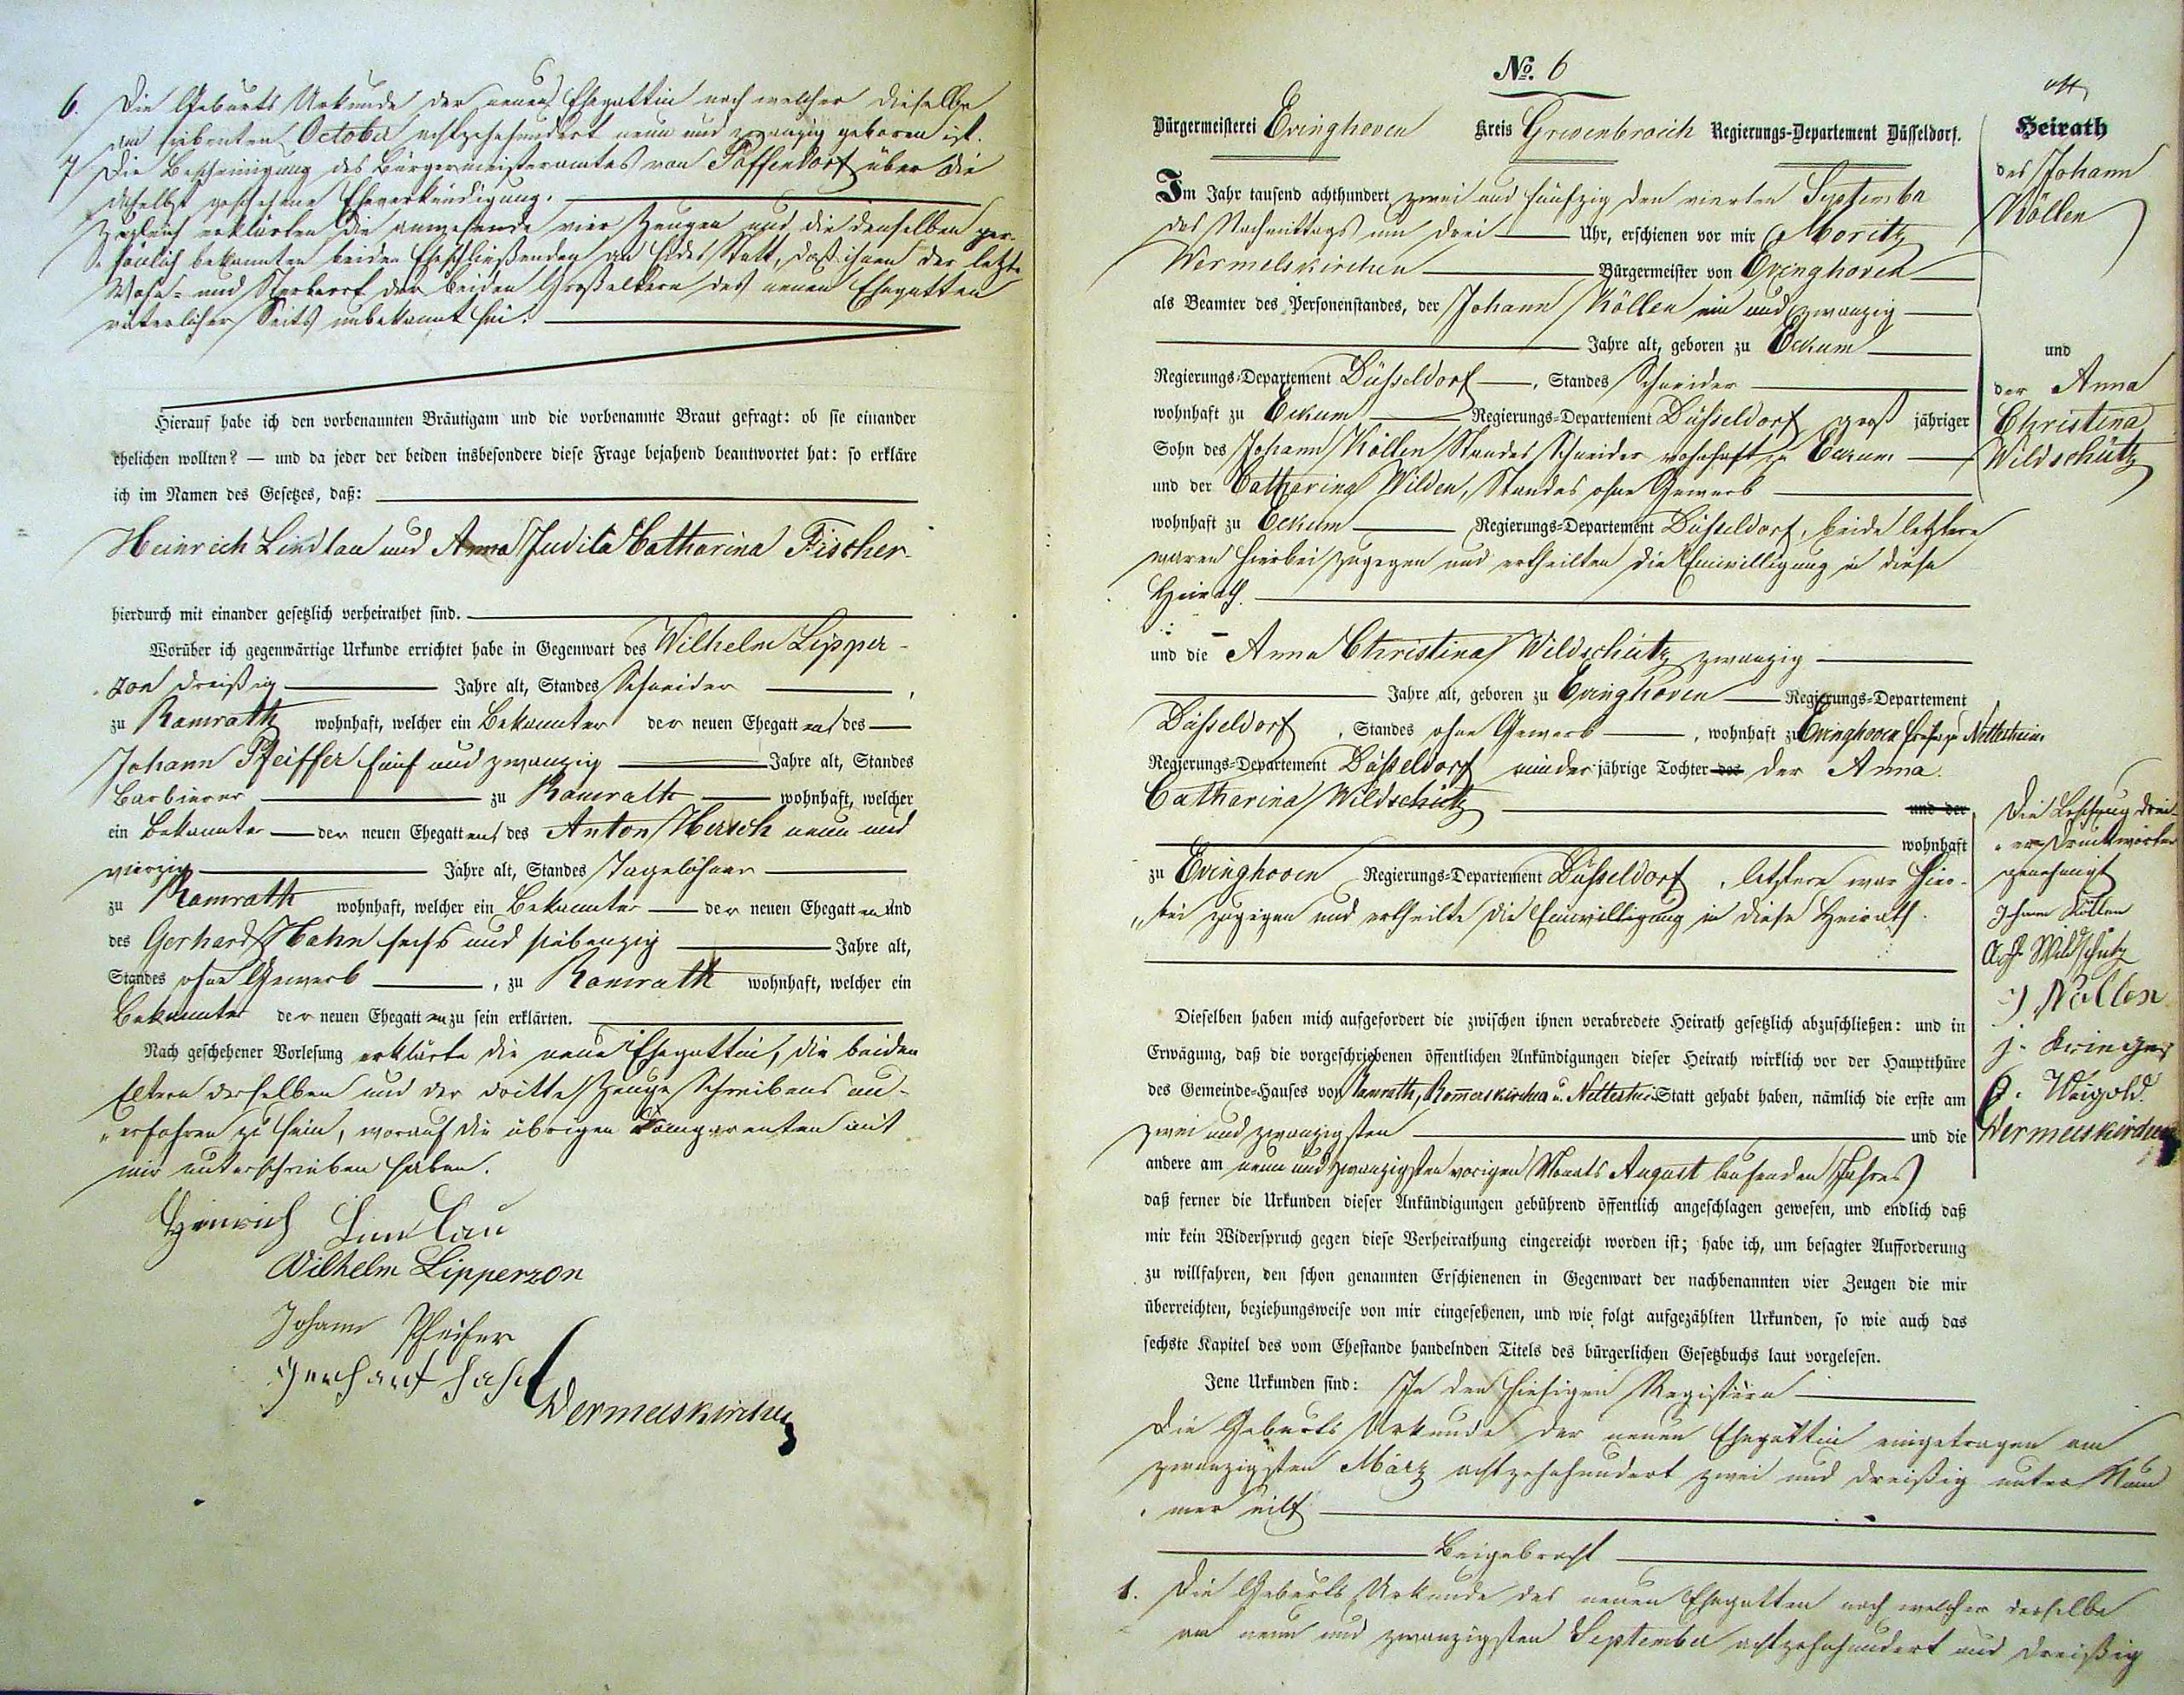 6. Die Geburts Urkunde der neuen Ehegattin nach welcher dieselbe
am siebenten October achtzehnhundert neun und zwanzig geboren ist.
7 Die Bescheinigung des Bürgermeisteramtes von Paffendorf über die
daselbst geschehene Eheverkündigung.
Zugleich erklärten die anwesende vier Zeugen und die denselben per-
sönlich bekannten beiden Eheschließenden an Eides Statt, daß ihnen der letzte
Wohn- und Sterbeort der beiden Großeltern des neuen Ehegatten
väterlicher Seits unbekannt sei.
Hierauf habe ich den vorbenannten Bräutigam und die vorbenannte Braut gefragt: ob sie einander
ehelichen wollten? — und da jeder der beiden insbesondere diese Frage bejahend beantwortet hat: so erkläre
ich im Namen des Gesetzes, daß:
Heinrich Lindlau und Anna Judita Catharina Fischer
hierdurch mit einander gesetzlich verheirathet sind.
Worüber ich gegenwärtige Urkunde errichtet habe in Gegenwart des Wilhelm Lipper-
zon dreißig Jahre alt, Standes Schneider,
zu Ramrath wohnhaft, welcher ein Bekannter der neuen Ehegatten des
Johann Pfeiffer fünf und zwanzig Jahre alt, Standes
Barbierer zu Ramrath wohnhaft, welcher
ein Bekannter der neuen Ehegatten des Anton Hersch neun und
vierzig Jahre alt, Standes Tagelöhner
zu Ramrath wohnhaft, welcher ein Bekannter der neuen Ehegatten und
des Gerhard Hahn sechs und siebenzig Jahre alt,
Standes ohne Gewerb, zu Ramrath wohnhaft, welcher ein
Bekannter der neuen Ehegatten zu sein erklärten.
Nach geschehener Vorlesung erklärte die neue Ehegattin, die beiden
Eltern derselben und der dritte Zeuge Schreibens un-
erfahren zu sein, worauf die übrigen Comparenten mit
mir unterschrieben haben.
Heinrich Lindlau
Wilhelm Lipperzon
Johann Pfeifer
Gerhart Hahn
Wermelskirchen
No. 6
Bürgermeisterei Evinghoven Kreis Grevenbroich Regierungs-Departement Düsseldorf.
Im Jahr tausend achthundert zwei und fünfzig den vierten September
des Nachmittags um drei Uhr, erschienen vor mir Moritz
Wermelskirchen Bürgermeister von Evinghoven
als Beamter des Personenstandes, der Johann Köllen ein und zwanzig
Jahre alt, geboren zu Eckum
Regierungs-Departement Düsseldorf, Standes Schneider
wohnhaft zu Eckum Regierungs-Departement Düsseldorf groß jähriger
Sohn des Johann Köllen Standes Schneider wohnhaft zu Eckum
und der Catharina Wilden, Standes ohne Gewerb
wohnhaft zu Eckum Regierungs-Departement Düsseldorf, beide letztere
waren hierbei zugegen und ertheilten die Einwilligung in diese
Heirath.
und die Anna Christina Wildschütz zwanzig
Jahre alt, geboren zu Evinghoven Regierungs-Departement
Düsseldorf, Standes ohne Gewerb, wohnhaft zu Evinghoven früher zu Nettesheim
Regierungs-Departement Düsseldorf minder jährige Tochter des der Anna
Catharina Wildschütz und der
wohnhaft
zu Evinghoven Regierungs-Departement Düsseldorf, letztere war hier-
bei zugegen und ertheilte die Einwilligung in diese Heirath.
Dieselben haben mich aufgefordert die zwischen ihnen verabredete Heirath gesetzlich abzuschließen: und in
Erwägung, daß die vorgeschriebenen öffentlichen Ankündigungen dieser Heirath wirklich vor der Hauptthüre
des Gemeinde-Hauses von Ramrath, Rommerskirchen u. Nettesheim Statt gehabt haben, nämlich die erste am
zwei und zwanzigsten und die
andere am neun und zwanzigsten vorigen Monats August laufenden Jahres
daß ferner die Urkunden dieser Ankündigungen gebührend öffentlich angeschlagen gewesen, und endlich daß
mir kein Widerspruch gegen diese Verheirathung eingereicht worden ist; habe ich, um besagter Aufforderung
zu willfahren, den schon genannten Erschienenen in Gegenwart der nachbenannten vier Zeugen die mir
überreichten, beziehungsweise von mir eingesehenen, und wie folgt aufgezählten Urkunden, so wie auch das
sechste Kapitel des vom Ehestande handelnden Titels des bürgerlichen Gesetzbuchs laut vorgelesen.
Jene Urkunden sind: In den hiesigen Registern
Die Geburts Urkunde der neuen Ehegattin eingetragen am
zwanzigsten März achtzehnhundert zwei und dreißig unter Num
mer eilf
Beigebracht
1. Die Geburts Urkunde des neuen Ehegatten nach welcher derselbe
am neun und zwanzigsten September achtzehnhundert und dreißig
Heirath
des Johann
Köllen
und
der Anna
Christina
Wildschütz
Die Löschung drei-
er Druckwörter
genehmigt
Johann Köllen
A. Ch. Wildschütz
J Köllen
J. Krieger
P. Weigold
Wermelskirchen